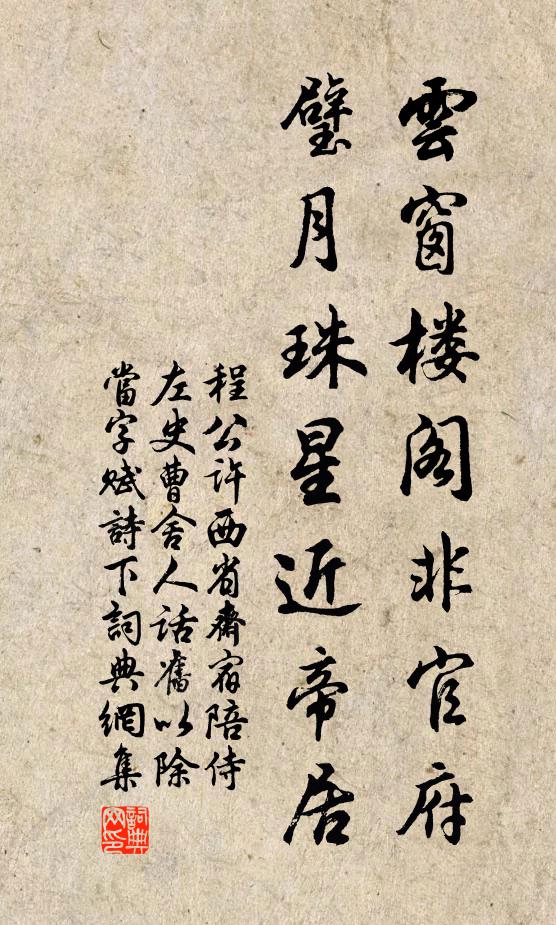 雲窗楼阁非官府
璧月珠星近帝居
程公許西省齋宿陪侍
左史曹舍人話舊以除
當字赋詩下詞典網集
詞典网印